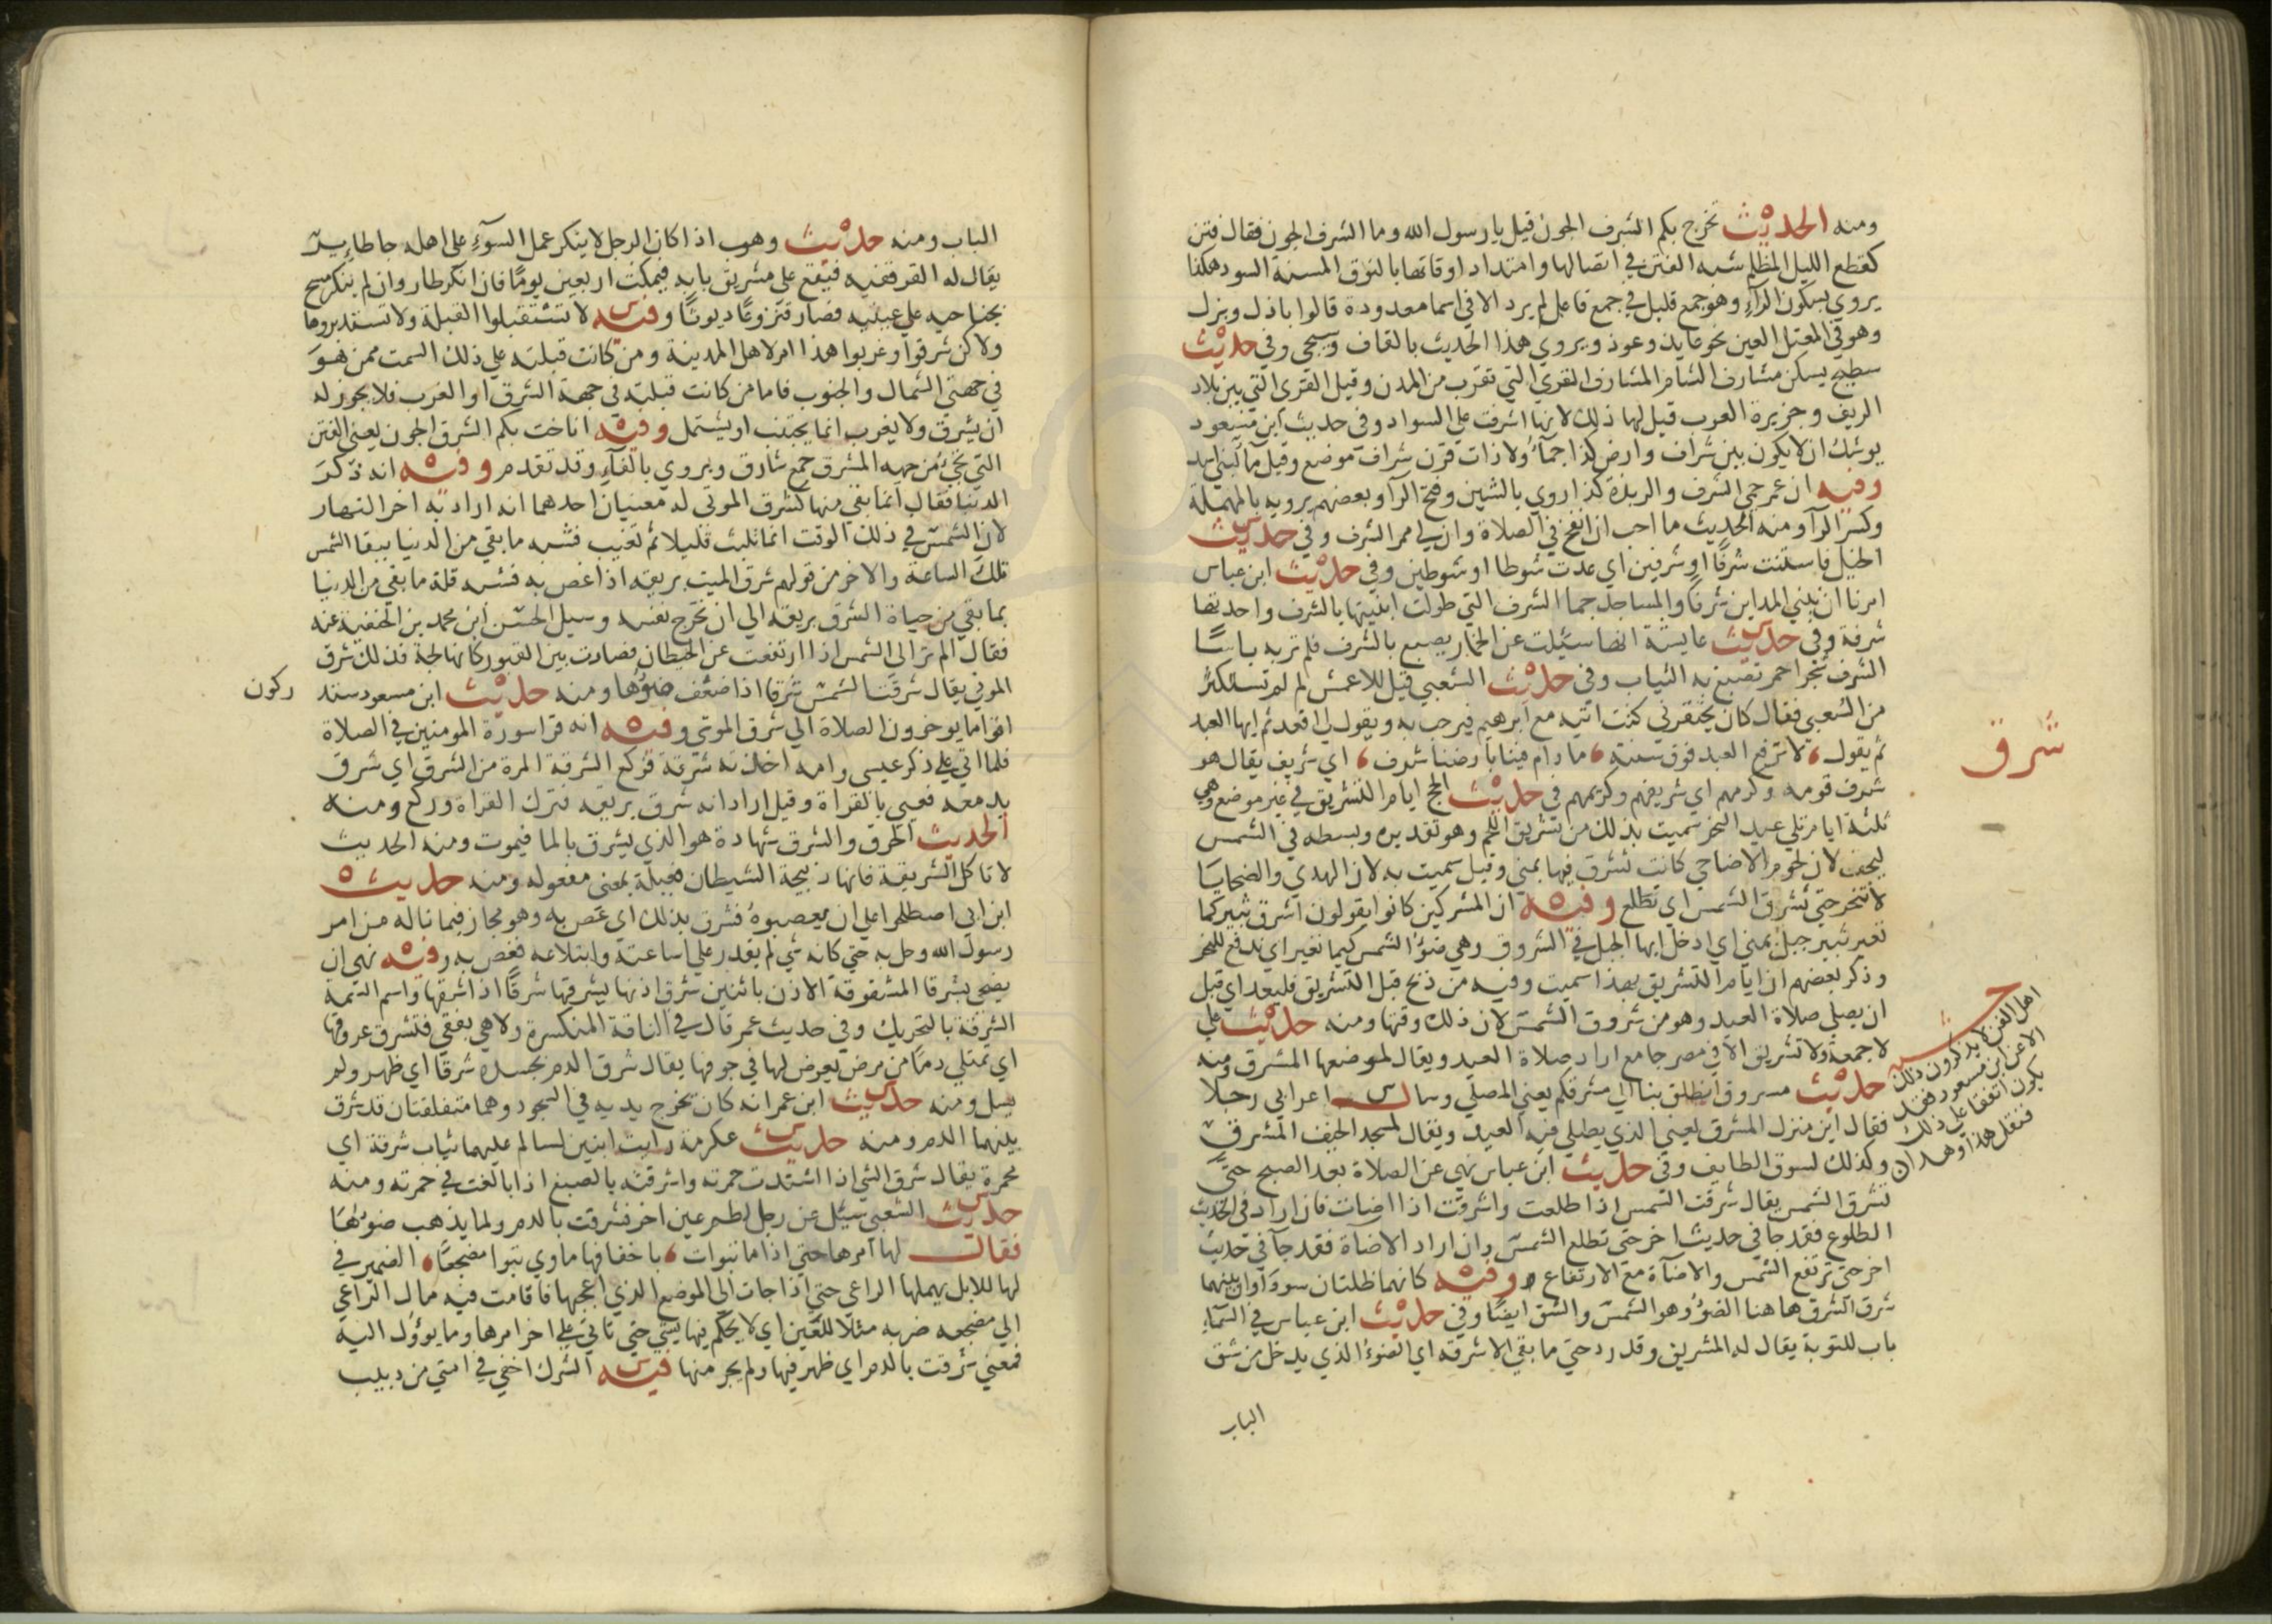 ومنه الحديث تخرج بكم الشرف الجون قيل يا رسول الله وما الشرف الجون فقال فتن
كقطع الليل المظلم شبه الفتن في اتصالها وامتداد اوقاتها بالنوق المسنة السود هكذا
يروي بسكون الرآء وهو جمع قليل في جمع فاعل لم يرد الا في اسما معدودة قالوا باذل وبزل
وهو في المعتل العين نحو عايد وعوذ ويروي هذا الحديث بالقاف وسيجي وفي حديث
سطيح يسكن مشارف الشام المشارف القري التي تقرب من المدن وقيل القري التي بين بلاد
الريف وجزيرة العرب قيل لها ذلك لانها اشرفت علي السواد وفي حديث ابن مسعود
يوشك ان لا يكون بين شراف وارض كذا جمآء ولا ذات قرن شراف موضع وقيل مآ لبني اسد
وفيه ان عمر حمي الشرف والربذة كذا روي بالشين وفتح الرآ وبعضهم يرويه بالمهملة
وكسر الرآ ومنه الحديث ما احب ان انفخ في الصلاة وان لي ممر الشرف وفي حديث
الخيل فاستنت شرفا او شرفين اي عدت شوطا او شوطين وفي حديث ابن عباس
امرنا ان نبني المداين شرفا والمساجد جما الشرف التي طولت ابنيتها بالشرف واحدتها
شرفة وفي حديث عايشة انها سئيلت عن الخمار يصبغ بالشرف فلم تر به باسا
الشرف شجر احمر تصبغ به الثياب وفي حديث الشعبي قيل للاعمش لم لم تستكثر
من الشعبي فقال كان يحتقرني كنت اتيه مع ابرهيم فيرحب به ويقول لي اقعد ثم ايها العبد
ثم يقول لا نرفع العبد فوق سنته ما دام فينا بارضنا شرف اي شريف يقال هو
شرف قومه وكرمهم اي شريفهم وكريمهم في حديث الحج ايام التشريق في غير موضع وهي
شرق
ثلثة ايام تلي عيد النحر سميت بذلك من تشريق اللحم وهو تقديده وبسطه في الشمس
ليجف لان لحوم الاضاحي كانت تشرق فيها بمني وقيل سميت به لان الهدي والضحايا
لا تنحر حتي تشرق الشمس اي تطلع وفيه ان المشركين كانوا يقولون اشرق ثبير كيما
نغير ثبير جبل بمني اي ادخل ايها الجبل في الشروق وهي ضوء الشمس كيما نغير اي ندفع للنحر
وذكر بعضهم ان ايام التشريق بهذا سميت وفيه من ذبح قبل التشريق فليعد اي قبل
ان يصلي صلاة العيد وهو من شروق الشمس لان ذلك وقتها ومنه حديث علي
لا جمعة ولا تشريق الا في مصر جامع اراد صلاة العيد ويقال لموضعها المشرق ومنه
حديث مسروق انطلق بنا الي مشرقكم يعني المصلي وسال اعرابي رجلا
فقال اين منزل المشرق يعني الذي يصلي فيه العيد ويقال لمسجد الخيف المشرق
وكذلك لسوق الطايف وفي حديث ابن عباس نهي عن الصلاة بعد الصبح حتي
تشرق الشمس يقال شرقت الشمس اذا طلعت واشرقت اذا اضات فان اراد في الحديث
الطلوع فقد جا في حديث اخر حتي تطلع الشمس وان اراد الاضاة فقد جآ في حديث
اخر حتي ترتفع الشمس والاضاة مع الارتفاع وفيه كانهما ظلتان سوداوان بينهما
شرق الشرق هاهنا الضوء وهو الشمس والشق ايضا وفي حديث ابن عباس في السمآء
باب للتوبة يقال له المشريق وقد رد حتي ما بقي الا شرقه اي الضوء الذي يدخل من شق
الباب
اهل الفن لا يذكرون ذلك
الا عن ابن مسعود فقد
يكون اتفقا علي ذلك
فنقل هذا وهذا
الباب ومنه حديث وهب اذا كان الرجل لا ينكر عمل السوء علي اهله جا طاير
يقال له القرقفنه فيقع علي مشريق بابه فيمكث اربعين يوما فان انكر طار وان لم ينكر مسح
بجناحيه علي عينيه فصار قنزعا ديوثا وفيه لا تستقبلوا القبلة ولا تستدبروها
ولاكن شرقوا وغربوا هذا امر لاهل المدينة ومن كانت قبلته علي ذلك السمت ممن هو
في جهتي الشمال والجنوب فاما من كانت قبلته في جهة الشرق او الغرب فلا يجوز له
ان يشرق ولا يغرب انما يجتنب او يشتمل وفيه اناخت بكم الشرق الجون يعني الفتن
التي تجئ من جهه المشرق جمع شارق ويروي بالفآء وقد تقدم وفيه انه ذكر
الدنيا فقال انما بقي منها كشرق الموتي له معنيان احدهما انه اراد به اخر النهار
لان الشمس في ذلك الوقت انما تلبث قليلا ثم تغيب فشبه ما بقي من الدنيا ببقا الشمس
تلك الساعة والاخر من قولهم شرق الميت بريقه اذا غص به فشبه قلة ما بقي من الدنيا
بما بقي من حياة الشرق بريقه الي ان تخرج نفسه وسيل الحسن ابن محمد بن الحنفية عنه
فقال الم تر الي الشمس اذا ارتفعت عن الحيطان فصارت بين القبور كانها لجة فذلك شرق
الموتي يقال شرقت الشمس شرقا اذا ضعف ضوؤها ومنه حديث ابن مسعود ستدركون
اقواما يوخرون الصلاة الي شرق الموتي وفيه انه قرا سورة المومنين في الصلاة
فلما اتي علي ذكر عيسي وامه اخذته شرقة فركع الشرقة المرة من الشرق اي شرق
بدمعه فعيي بالقراة وقيل اراد انه شرق بريقه فترك القراة وركع ومنه
الحديث الحرق والشرق شهادة هو الذي يشرق بالما فيموت ومنه الحديث
لا تاكل الشريقة فانها ذبيحة الشيطان فعيلة بمعني مفعوله ومنه حديث
ابن ابي اصطلحوا علي ان يعصبوه فشرق بذلك اي غص به وهو مجاز فيما ناله من امر
رسول الله وحل به حتي كانه شي لم يقدر علي اساغته وابتلاعه فغص به وفيه نهي ان
يضحي بشرقا المشقوقة الاذن باثنين شرق اذنها يشرقها شرقا اذا اشرقها واسم السمة
الشرقة بالتحريك وفي حديث عمر قال في الناقة المنكسرة ولا هي بفقي فتشرق عروقها
اي تمتلي دما من مرض يعرض لها في جوفها يقال شرق الدم بجسده شرقا اي ظهر ولم
يسل ومنه حديث ابن عمر انه كان يخرج يديه في السجود وهما متفلقتان قد شرق
بينهما الدم ومنه حديث عكرمة رايت ابنين لسالم عليهما ثياب شرقة اي
محمرة يقال شرق الشي اذا اشتدت حمرته واشرقته بالصبغ اذا بالغت في حمرته ومنه
حديث الشعبي سئيل عن رجل لطم عين اخر فشرقت بالدم ولما يذهب ضوؤها
فقال لها امرها حتي اذا ما تبوات باخفافها ماوي تبوا مضجعا الضمير في
لها للابل يهملها الراعي حتي اذا جات الي الموضع الذي اعجبها فاقامت فيه مال الراعي
الي مضجعه ضربه مثلا للعين اي لا يحكم فيها بشي حتي تاتي علي اخر امرها وما يوؤل اليه
فمعني شرقت بالدم اي ظهر فيها ولم يجر منها فيه الشرك اخفي في امتي من دبيب